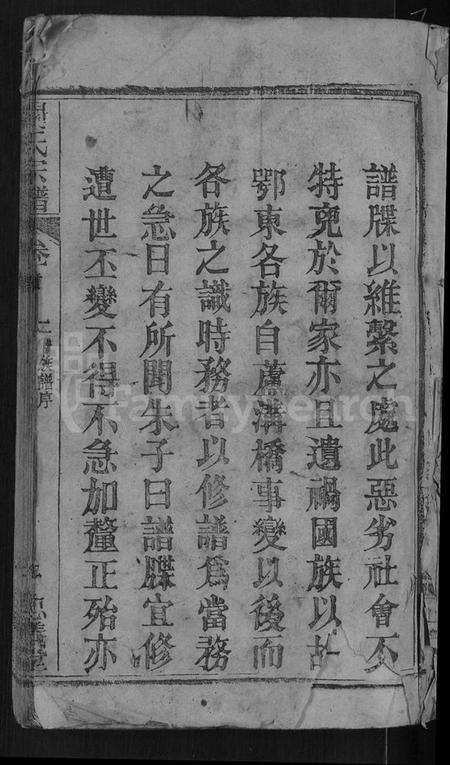 譜牒以維繫之處此惡劣社會不
特兇於爾家亦且遺禍國族以故
鄂東各族自蘆溝橋事變以後而
各族之識時務者以修譜爲當務
之急日有所聞朱子曰譜牒宜修
遭世不變不得不急加釐正殆亦
氏宗譜
卷首
譜序
FamilySearch